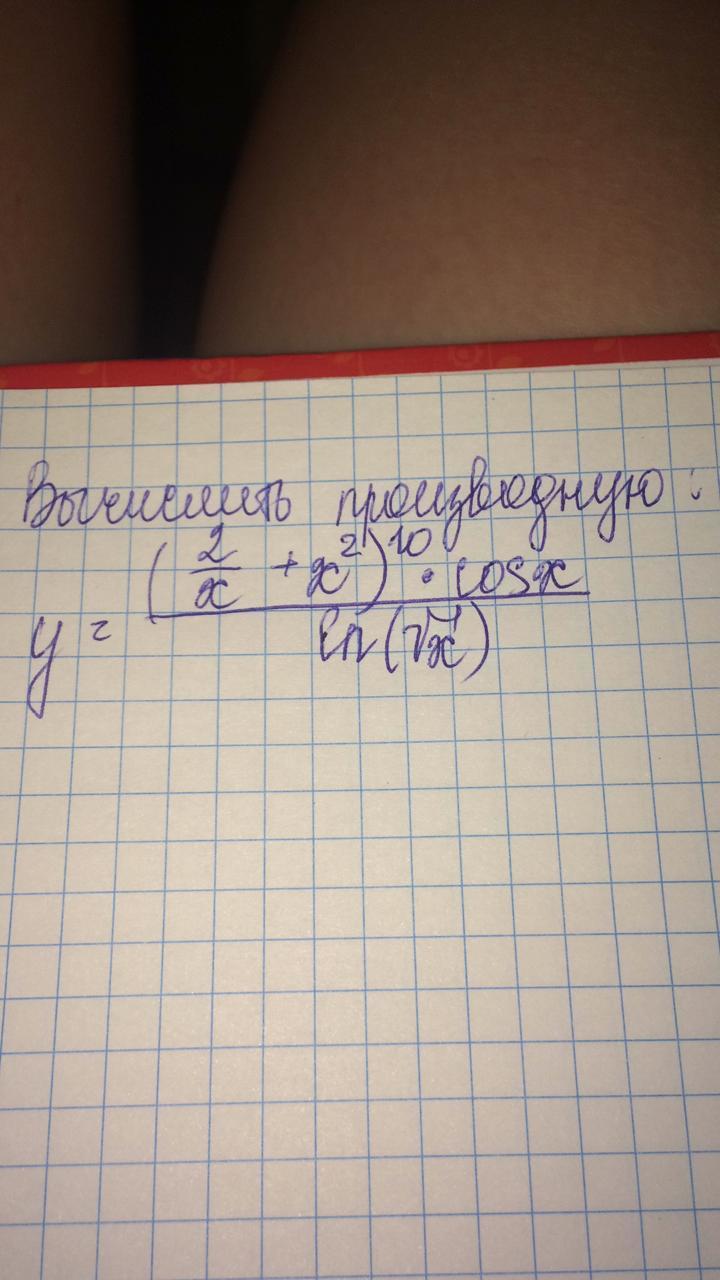 Вычислить производную:
y = ((2/x + x²)^10 · cosx) / ln(√x)